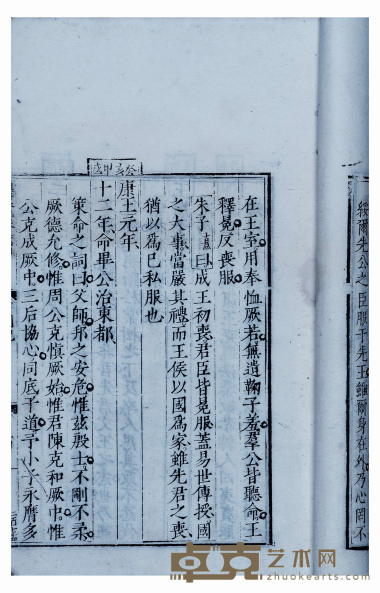 綏爾先公之臣服于先王雖爾身在外乃心罔不
在王室用奉恤厥若無遺鞠子羞羣公皆聽命王
釋冕反喪服
朱子曰成王初喪君臣皆冕服蓋易世傳授國
之大事當嚴其禮而王侯以國爲家雖先君之喪
猶以爲己私服也
康王元年
十二年命畢公治東都
策命之詞曰父師邦之安危惟茲殷士不剛不柔
厥德允修惟周公克慎厥始惟君陳克和厥中惟
公克成厥中三后協心同底于道予小子永膺多
卓克艺术网
www.zhuokearts.com